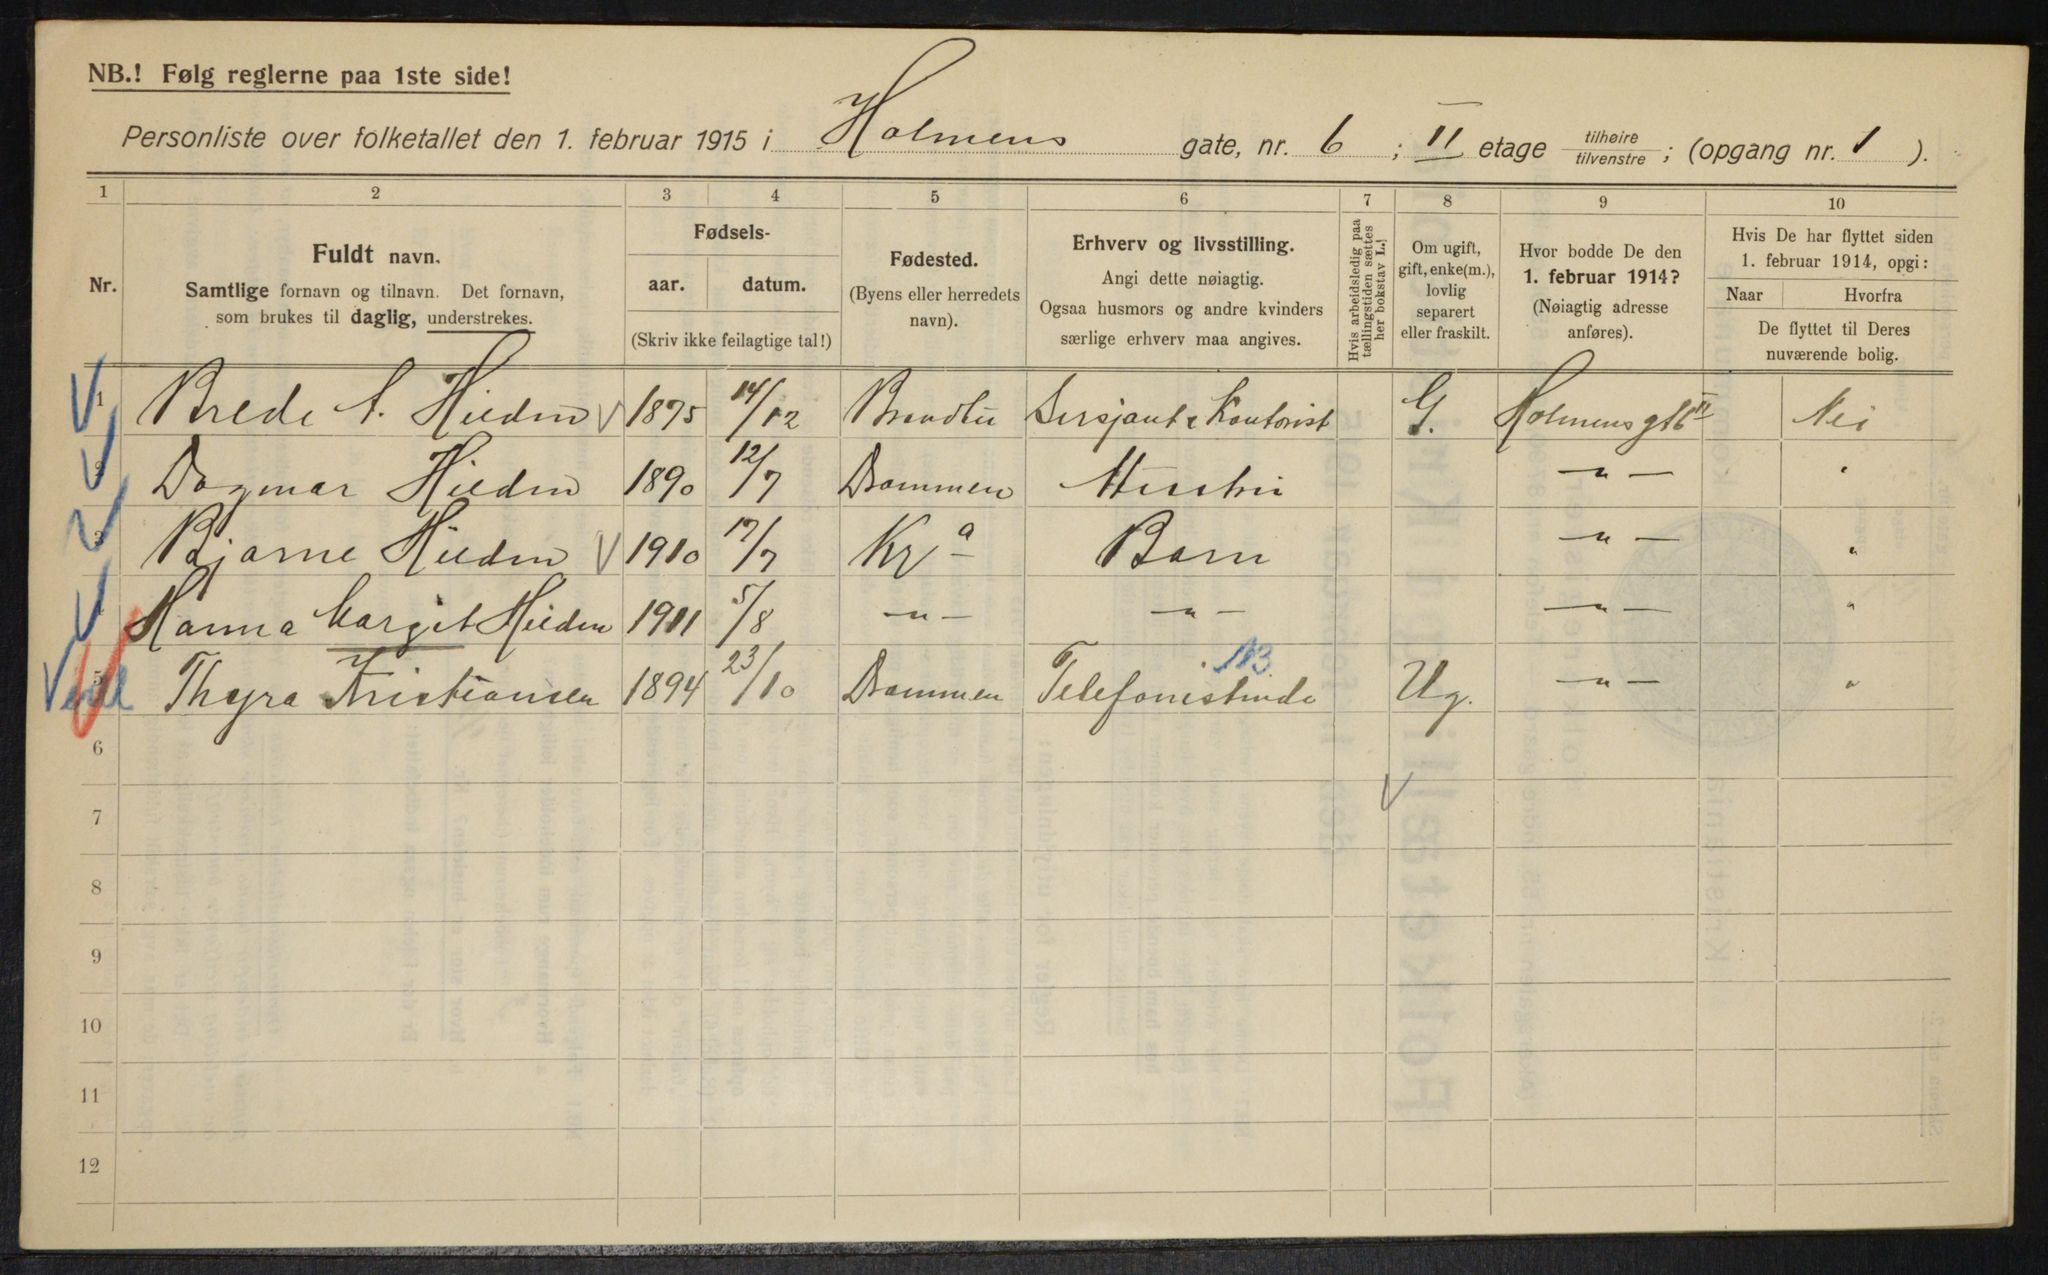 NB.! Følg reglerne paa 1ste side!
Personliste over folketallet den 1. februar 1915 i Holmens gate, nr. 6 ; II etage tilhøire/tilvenstre ; (opgang nr. 1 ).
1 2 3 4 5 6 7 8 9 10
Nr.
Fuldt navn.
Samtlige fornavn og tilnavn. Det fornavn,
som brukes til daglig, understrekes.
Fødsels-
aar. datum.
(Skriv ikke feilagtige tal!)
Fødested.
(Byens eller herredets
navn).
Erhverv og livsstilling.
Angi dette nøiagtig.
Ogsaa husmors og andre kvinders
særlige erhverv maa angives.
Hvis arbeidsledig paa
tællingstiden sættes
her bokstav L.
Om ugift,
gift, enke(m.),
lovlig
separert
eller fraskilt.
Hvor bodde De den
1. februar 1914?
(Nøiagtig adresse
anføres).
Hvis De har flyttet siden
1. februar 1914, opgi:
Naar Hvorfra
De flyttet til Deres
nuværende bolig.
1 Brede A. Hilden V 1875 14/12 Brandbu Sersjant & Kontorist G. Holmens gt 6 II Nei
2 Dagmar Hilden 1890 12/7 Drammen Hustru -"- "
3 Bjarne Hilden V 1910 17/7 Kra Barn -"- "
4 Hanna Margit Hilden 1911 5/8 -"- -"- -"- "
5 Thyra Kristiansen 1894 23/10 Drammen Telefonistinde Ug. -"- "
6
7
8
9
10
11
12